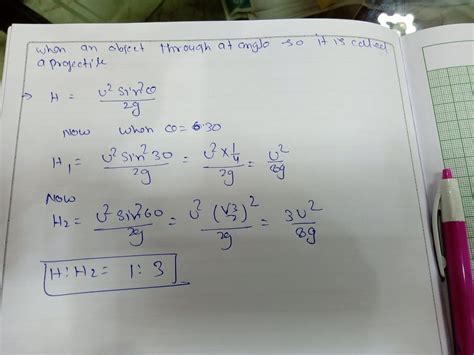 when an object through at anglo so it is called
a projectile
→ H = u² sin²ω / 2g
Now when ω = 30
H₁ = u² sin² 30 / 2g = u² × 1/4 / 2g = u² / 8g
Now
H₂ = u² sin² 60 / 2g = u² (√3/2)² / 2g = 3u² / 8g
H : H₂ = 1 : 3